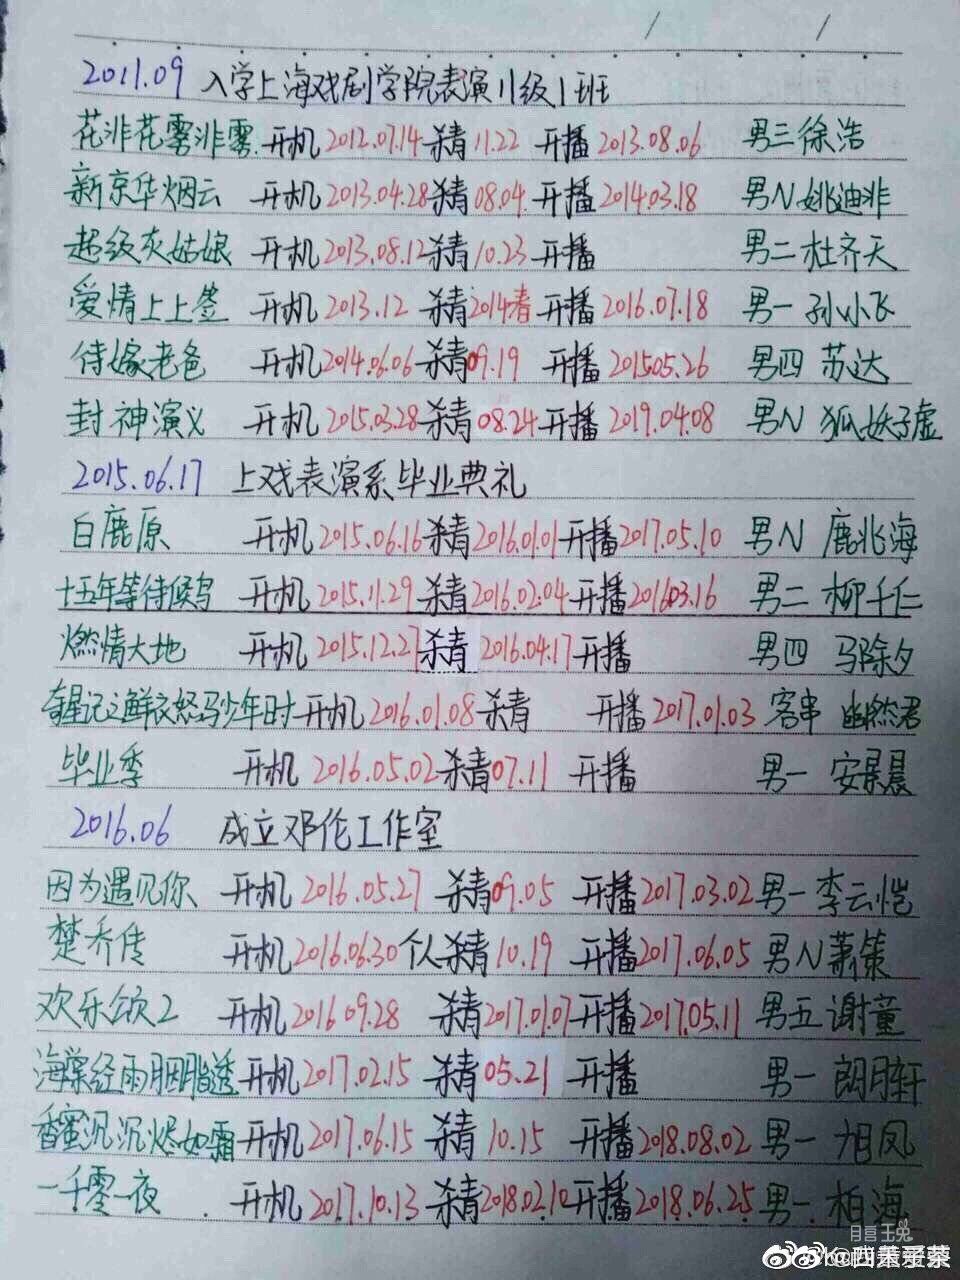 2011.09 入学上海戏剧学院表演11级1班
花非花雾非雾 开机2012.07.14 杀青11.22 开播2013.08.06 男三徐浩
新京华烟云 开机2013.04.28杀青08.04 开播2014.03.18 男N姚迪非
超级灰姑娘 开机2013.08.12杀青10.23 开播 男二杜齐天
爱情上上签 开机2013.12 杀青2014春 开播2016.07.18 男一孙小飞
待嫁老爸 开机2014.06.06 杀青09.19 开播201505.26 男四 苏达
封神演义 开机2015.03.28杀青08.24开播2019.04.08 男N 狐妖子虚
2015.06.17 上戏表演系毕业典礼
白鹿原 开机2015.06.16杀青2016.01.01开播2017.05.10 男N 鹿兆海
十五年等待候鸟 开机2015.11.29 杀青2016.02.04开播201603.16 男二 柳千仁
燃情大地 开机2015.12.27杀青2016.04.17开播 男四 马除夕
奇星记之鲜衣怒马少年时开机2016.01.08杀青 开播2017.01.03 客串 幽然君
毕业季 开机2016.05.02杀青07.11 开播 男一 安景晨
2016.06 成立邓伦工作室
因为遇见你 开机2016.05.27 杀青09.05 开播2017.03.02男一李云恺
楚乔传 开机2016.06.30个人杀青10.19 开播2017.06.05 男N萧策
欢乐颂2 开机2016 09.28 杀青2017.01.07开播2017.05.11 男五谢童
海棠经雨胭脂透开机2017.02.15 杀青05.21 开播 男一 朗月轩
香蜜沉沉烬如霜开机2017.06.15 杀青10.15 开播2018.08.02男一 旭凤
一千零一夜 开机2017.10.13 杀青2018.02.10开播2018.06.25男一 柏海